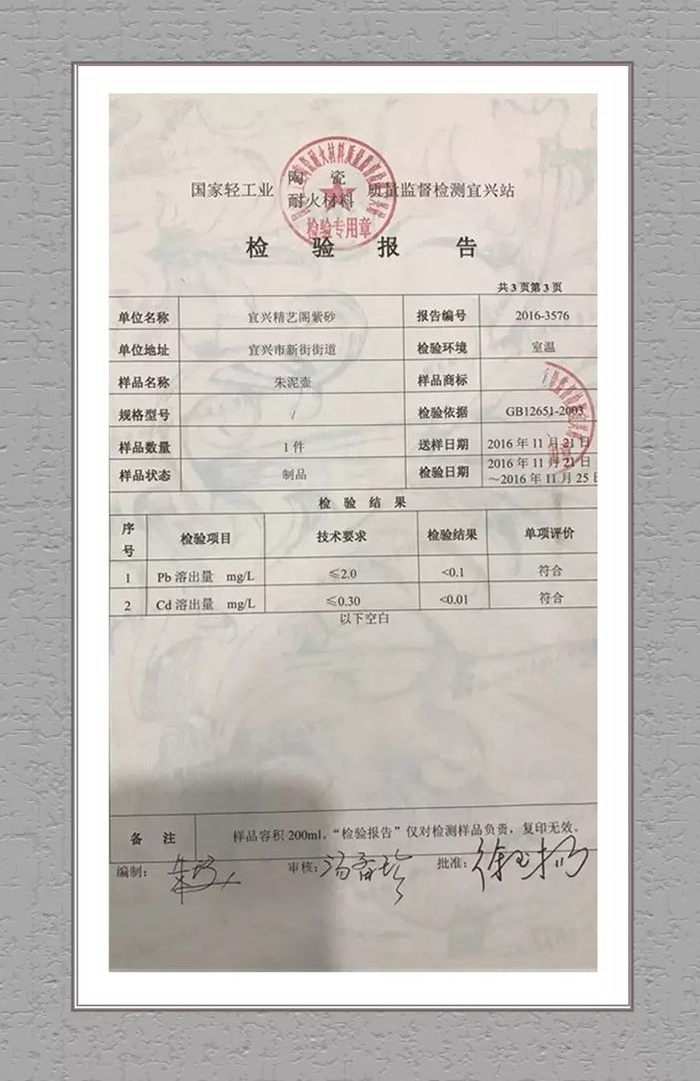 国家轻工业 陶瓷 耐火材料 质量监督检测宜兴站
检验专用章
检 验 报 告
共 3 页第 3 页
单位名称 宜兴精艺阁紫砂 报告编号 2016-3576
单位地址 宜兴市新街街道 检验环境 室温
样品名称 朱泥壶 样品商标
规格型号 / 检验依据 GB12651-2003
样品数量 1 件 送样日期 2016 年 11 月 21 日
样品状态 制品 检验日期 2016 年 11 月 21 日
～2016 年 11 月 25 日
检 验 结 果
序号 检验项目 技术要求 检验结果 单项评价
1 Pb 溶出量 mg/L ≤2.0 <0.1 符合
2 Cd 溶出量 mg/L ≤0.30 <0.01 符合
以下空白
备 注 样品容积 200ml。“检验报告”仅对检测样品负责，复印无效。
编制： 审核： 批准：